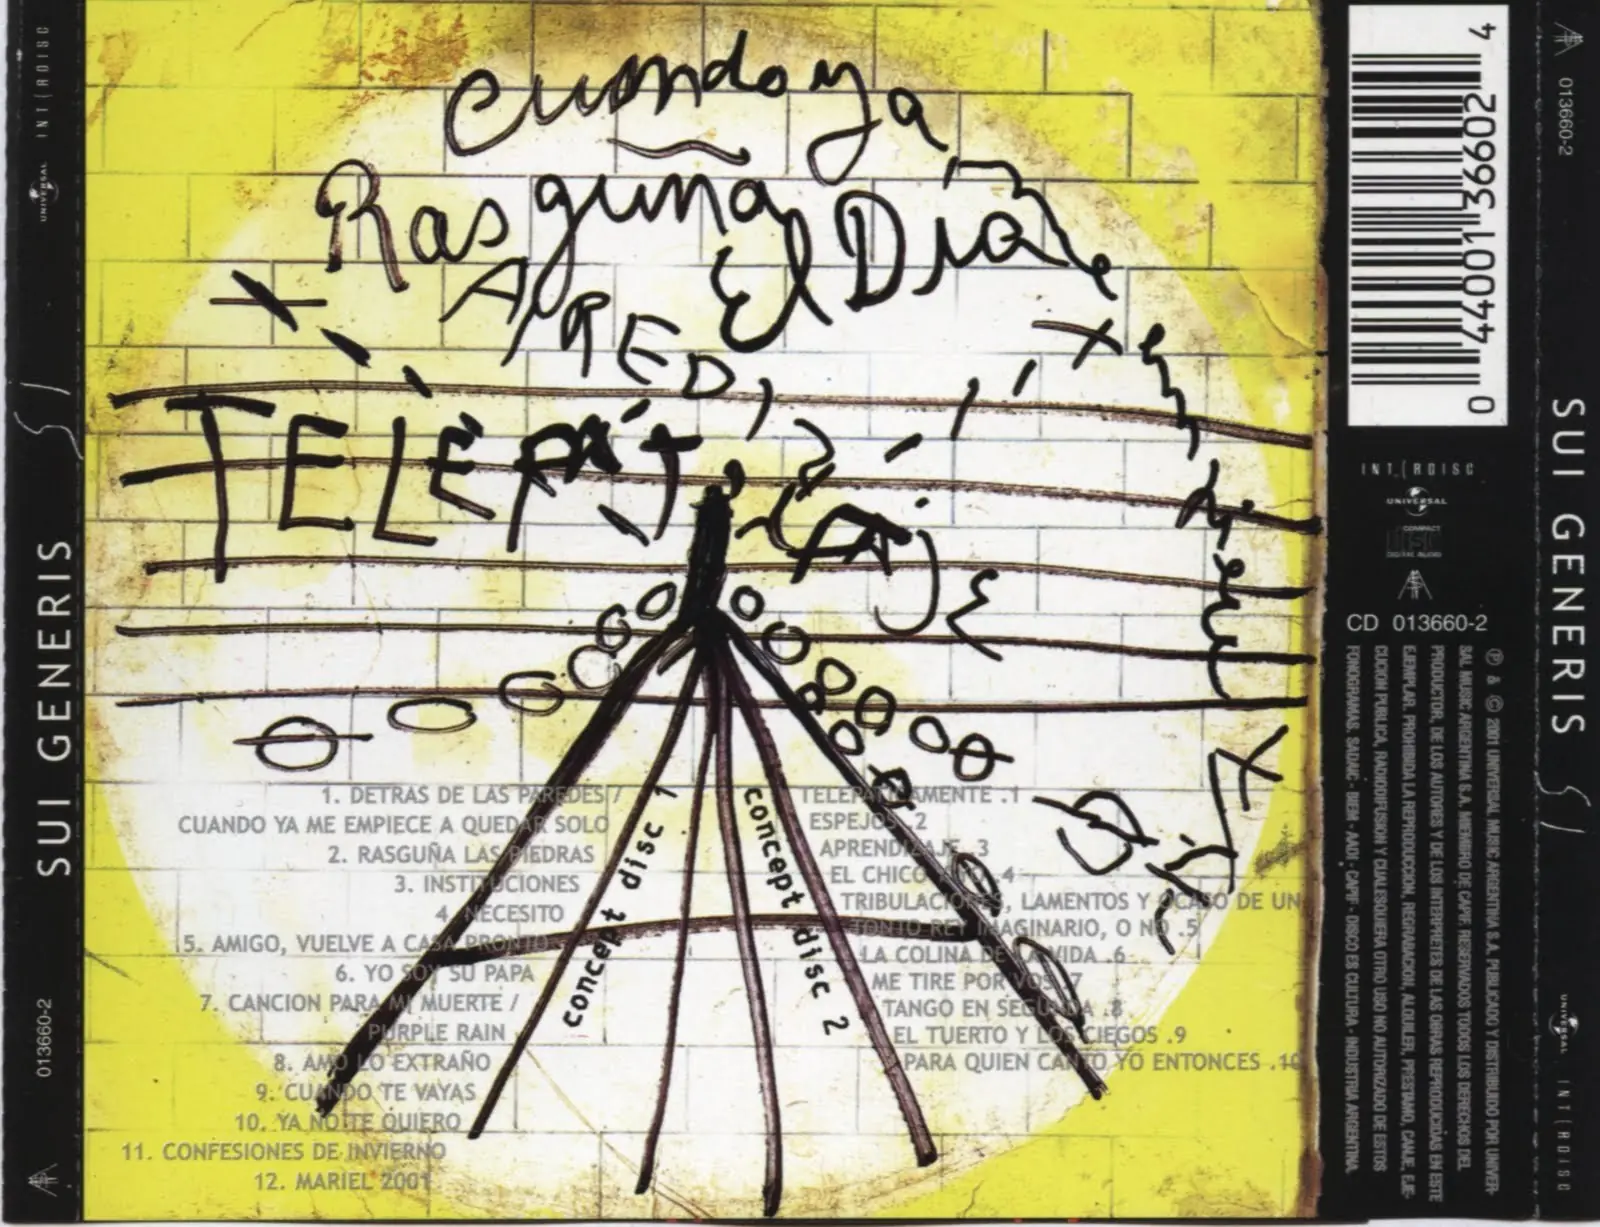 Cuando ya
Rasguna
El Dia
TELEPAT
1. DETRAS DE LAS PAREDES /
CUANDO YA ME EMPIECE A QUEDAR SOLO
2. RASGUÑA LAS PIEDRAS
3. INSTITUCIONES
4. NECESITO
5. AMIGO, VUELVE A CASA PRONTO
6. YO SOY SU PAPA
7. CANCION PARA MI MUERTE /
PURPLE RAIN
8. AMO LO EXTRAÑO
9. CUANDO TE VAYAS
10. YA NO TE QUIERO
11. CONFESIONES DE INVIERNO
12. MARIEL 2001
concept disc 1
concept disc 2
TELEPATICAMENTE .1
ESPEJOS .2
APRENDIZAJE .3
EL CHICO Y YO .4
TRIBULACIONES, LAMENTOS Y OCASO DE UN
TONTO REY IMAGINARIO, O NO .5
LA COLINA DE LA VIDA .6
ME TIRE POR VOS .7
TANGO EN SEGUNDA .8
EL TUERTO Y LOS CIEGOS .9
PARA QUIEN CANTO YO ENTONCES .10
INTERDISC
UNIVERSAL
SUI GENERIS
013660-2
0 44001 36602 4
INTERDISC
UNIVERSAL
COMPACT
disc
DIGITAL AUDIO
CD 013660-2
℗ & © 2001 UNIVERSAL MUSIC ARGENTINA S.A. PUBLICADO Y DISTRIBUIDO POR UNIVER-
SAL MUSIC ARGENTINA S.A. MIEMBRO DE CAPIF. RESERVADOS TODOS LOS DERECHOS DEL
PRODUCTOR, DE LOS AUTORES Y DE LOS INTERPRETES DE LAS OBRAS REPRODUCIDAS EN ESTE
EJEMPLAR. PROHIBIDA LA REPRODUCCION, REGRABACION, ALQUILER, PRESTAMO, CANJE, EJE-
CUCION PUBLICA, RADIODIFUSION Y CUALESQUIERA OTRO USO NO AUTORIZADO DE ESTOS
FONOGRAMAS. SADAIC - BIEM - AADI - CAPIF - DISCO ES CULTURA - INDUSTRIA ARGENTINA.
013660-2
SUI GENERIS
UNIVERSAL
INTERDISC